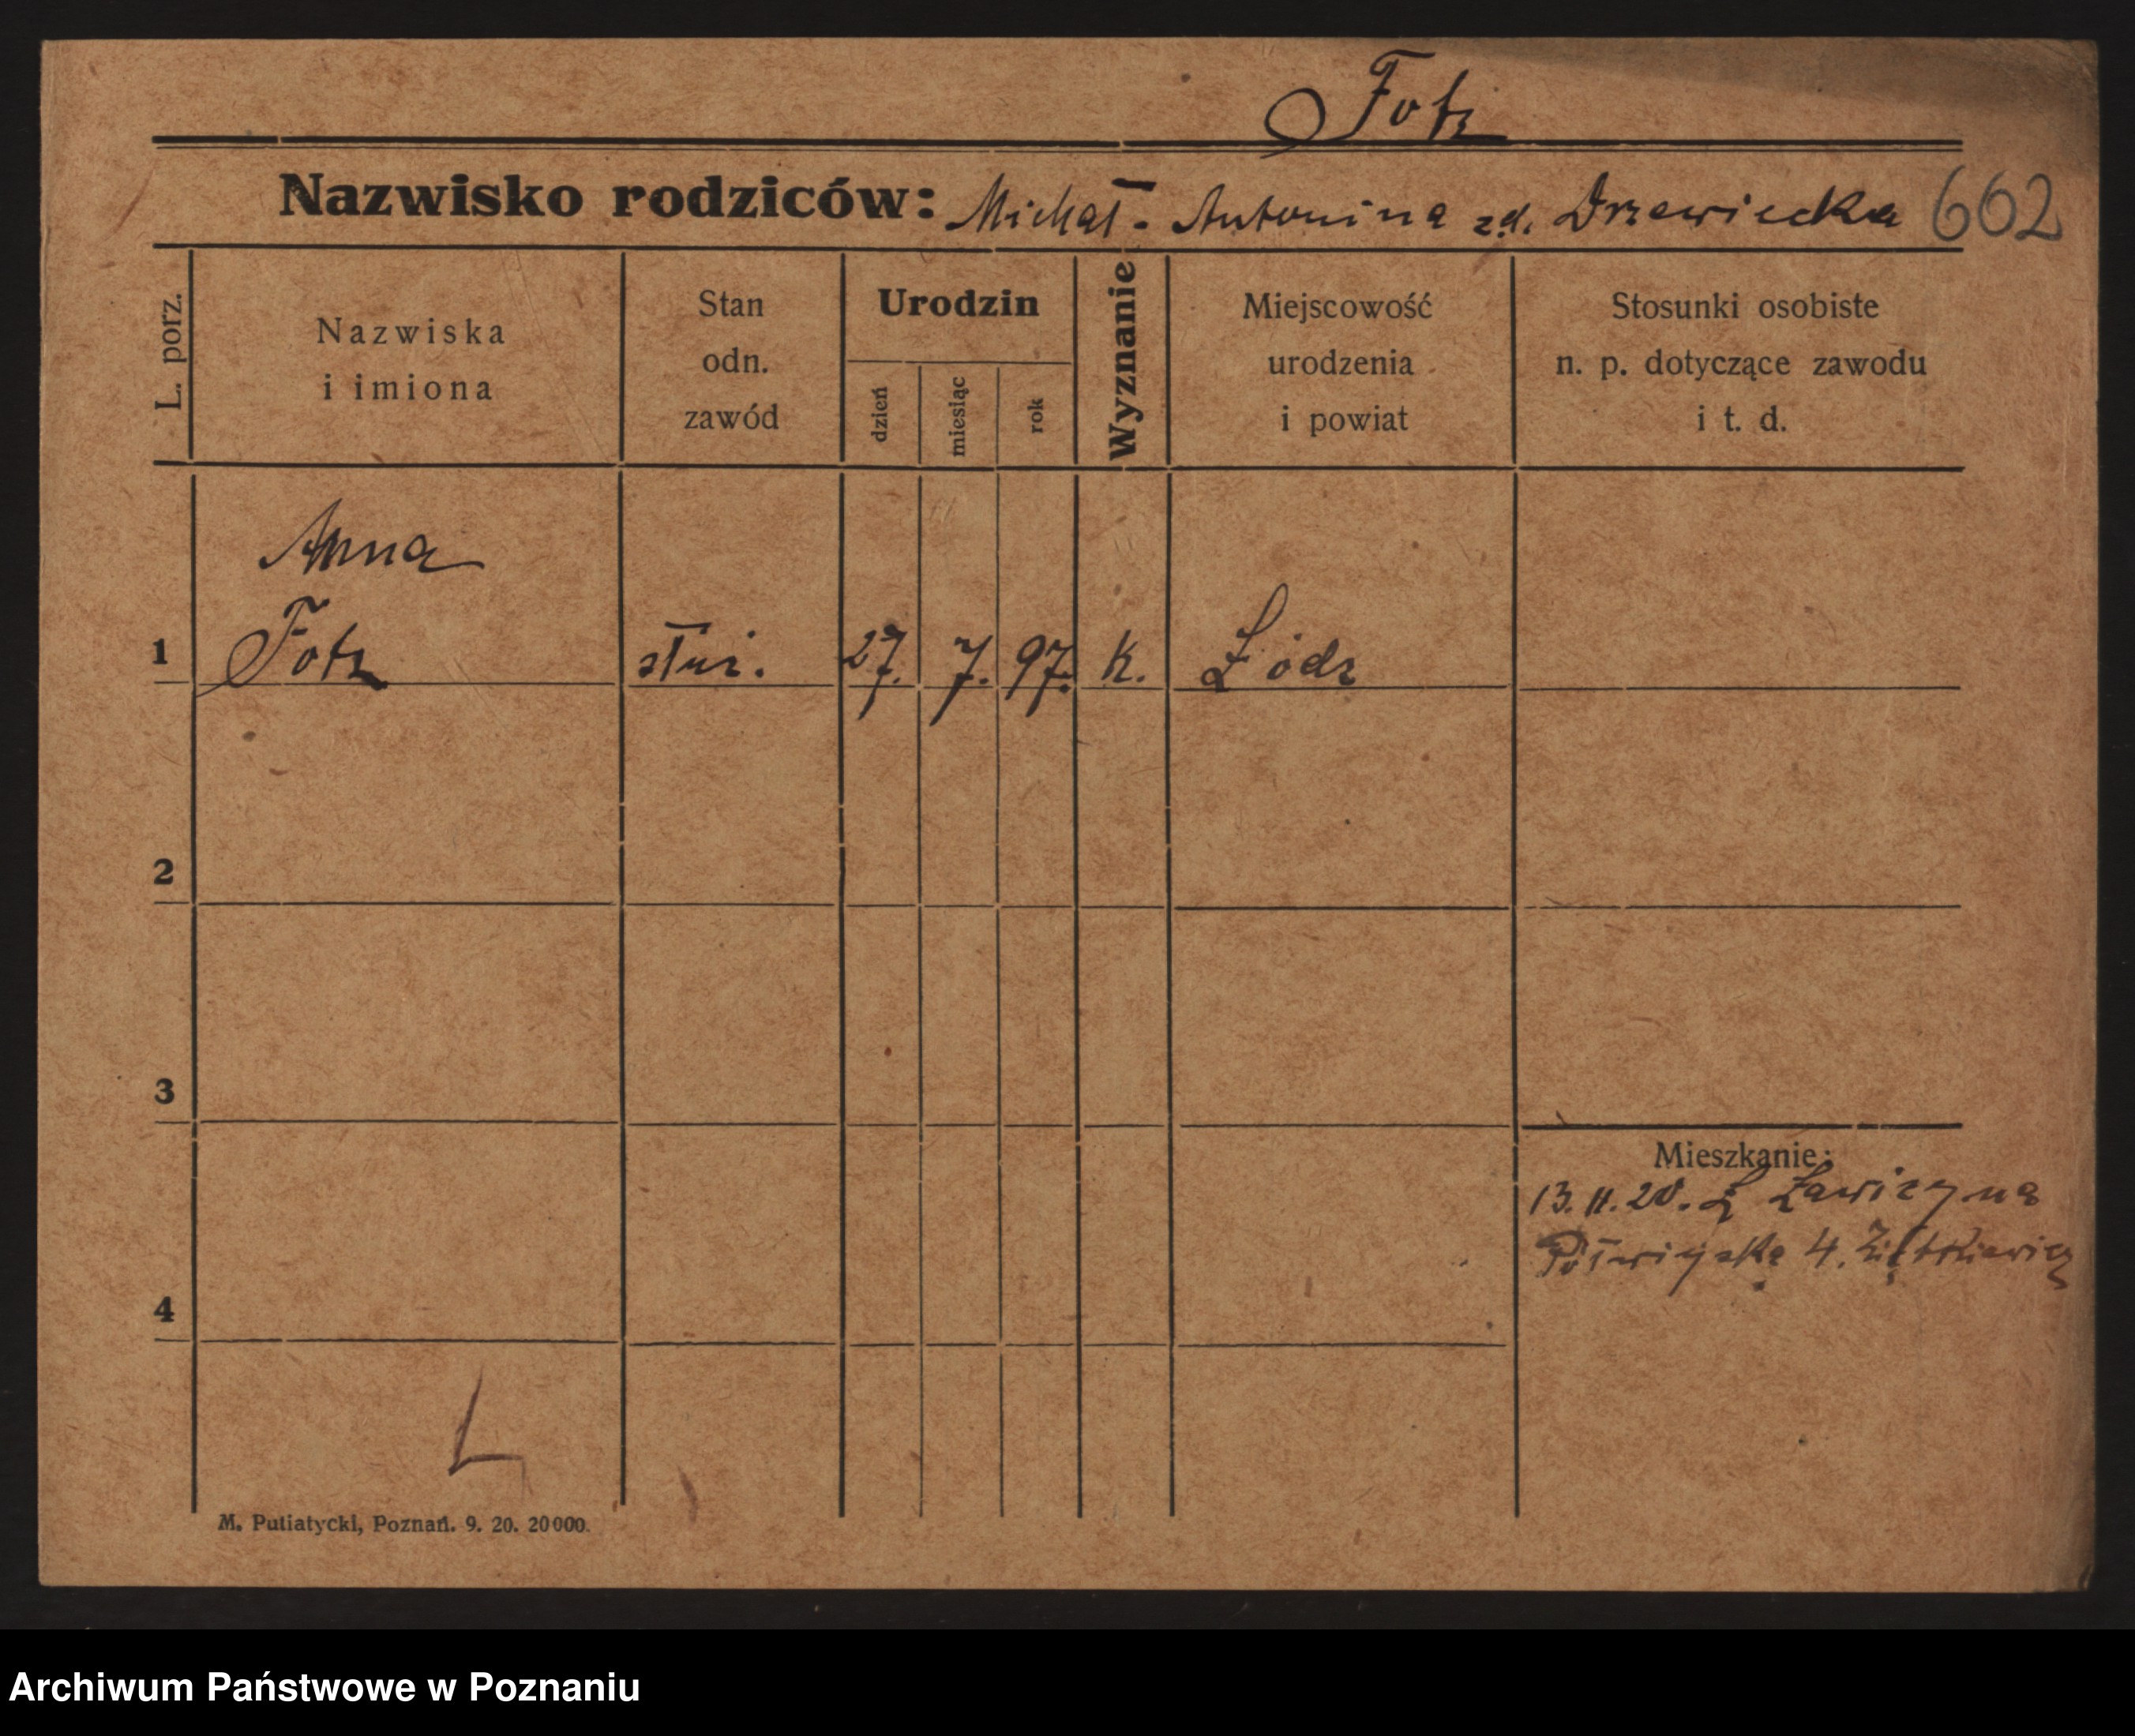 Fotz
Nazwisko rodziców: Michał - Antonina zd. Drzewiecka 662
L. porz.
Nazwiska
i imiona
Stan
odn.
zawód
Urodzin
dzień
miesiąc
rok
Wyznanie
Miejscowość
urodzenia
i powiat
Stosunki osobiste
n. p. dotyczące zawodu
i t. d.
Anna
1 Fotz służ. 27. 7. 97. k. Łódz
2
3
Mieszkanie:
13. 11. 20. z
4. Ziętkiewicz
4
L
M. Putiatycki, Poznań. 9. 20. 20000.
Archiwum Państwowe w Poznaniu